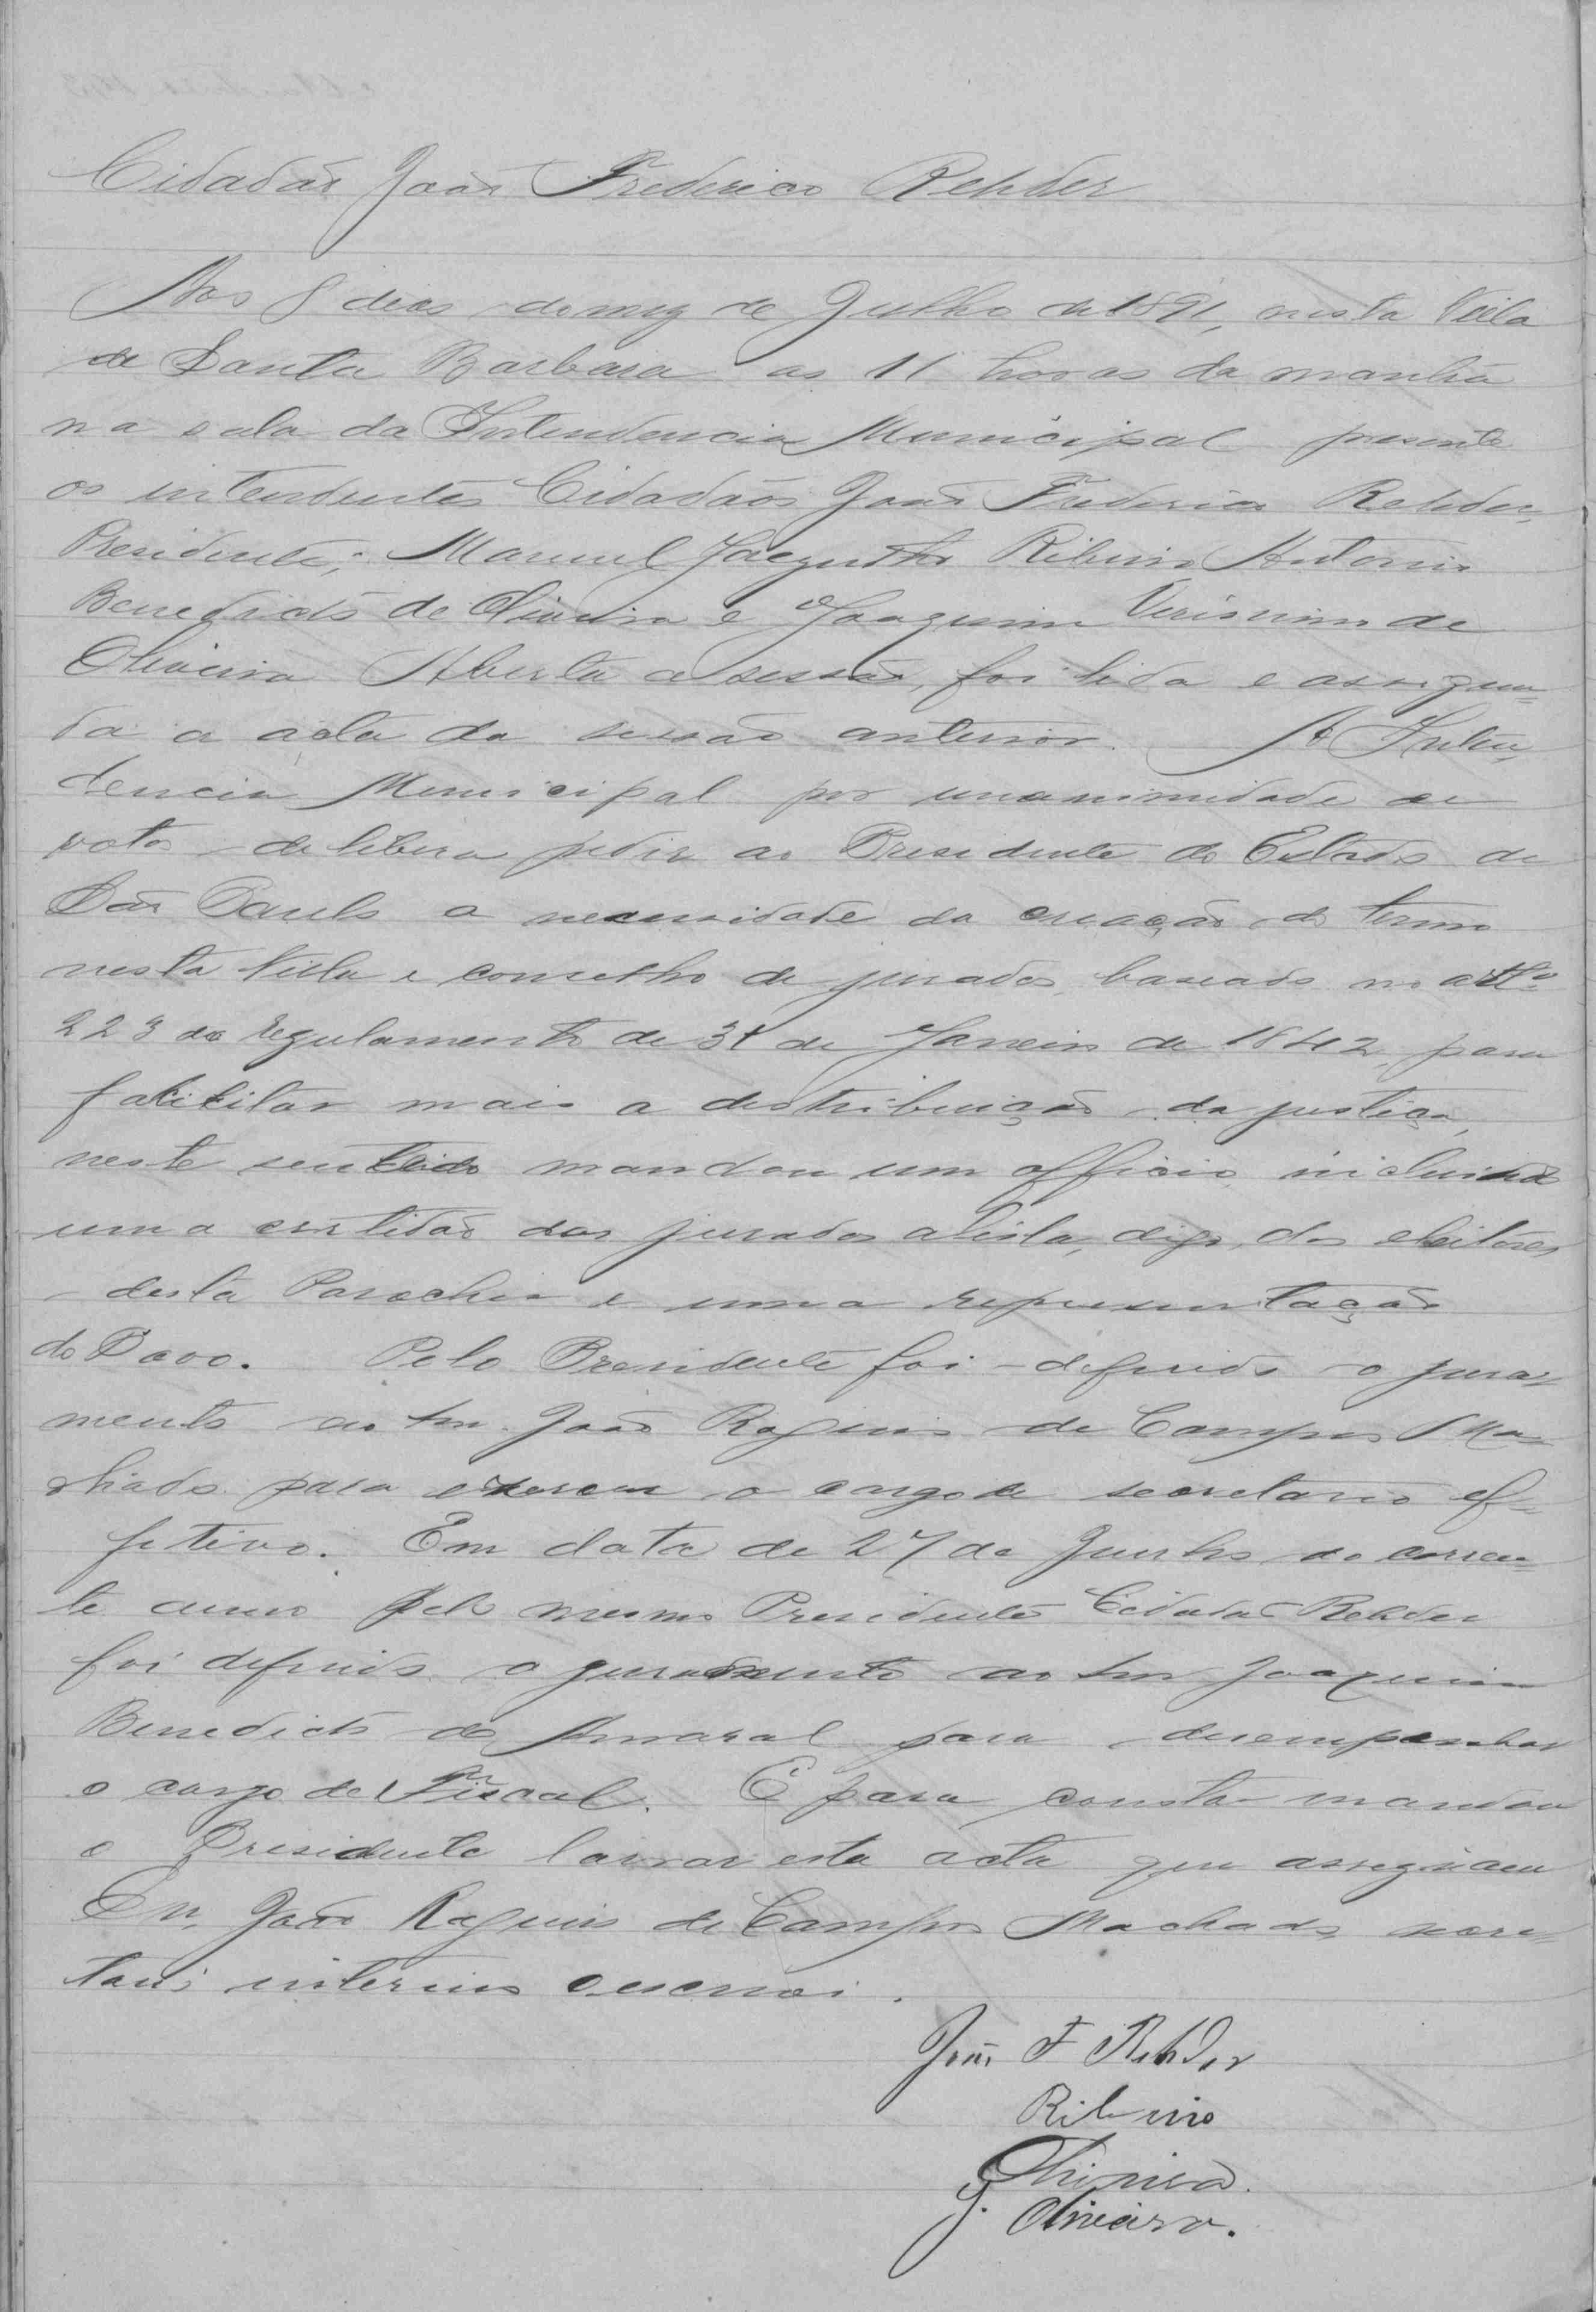 Cidadão João Frederico Rehder
Aos 8 dias do mez de Julho de 1891, nesta Villa
de Santa Barbara as 11 horas da manhã
na sala da Intendencia Municipal presente
os intendentes Cidadãos João Frederico Rehder,
Presidente; Manuel Jacyntho Ribeiro Antonio
Benedicto de Oliveira e Joaquim Verissimo de
Oliveira Aberta a sessão, foi lida e assigna=
da a acta da sessão anterior. A Inten=
dencia Municipal por unanimidade de
votos delibera pedir ao Presidente do Estado de
São Paulo a necessidade da creação do termo
nesta Villa e conselho de jurados, baseado no artº
223 do regulamento de 31 de Janeiro de 1842, para
facilitar mais a destribuição da justiça,
neste sentido mandou um officio, incluindo
uma certidão dos jurados alista, digo, dos eleitores
desta Parochia e uma representação
do Povo. Pelo Presidente foi deferido o jura=
mento ao snr. João Ragim de Campos Ma=
chado para exercer o cargo de secretario ef=
fetivo. Em data de 27 de Junho do corren=
te anno pelo mesmo Presidente Cidadão Rehder
foi deferido o juramento ao snr Joaquim
Benedicto do Amaral para desempenhar
o cargo de Fiscal. E para constar mandou
o Presidente lavrar esta acta que assignam
Eu, João de Campos Machado, secre=
tario interino o escrevi.
João F Rehder
Ribeiro
Oliveira.
J. Oliveira.